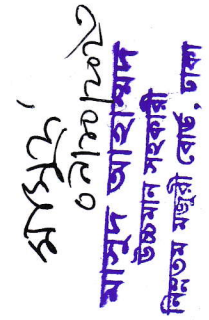 মাসুদ
০১/০১/০২
মাসুদ আহাম্মদ
উচ্চমান সহকারী
নিম্নতম মজুরী বোর্ড, ঢাকা